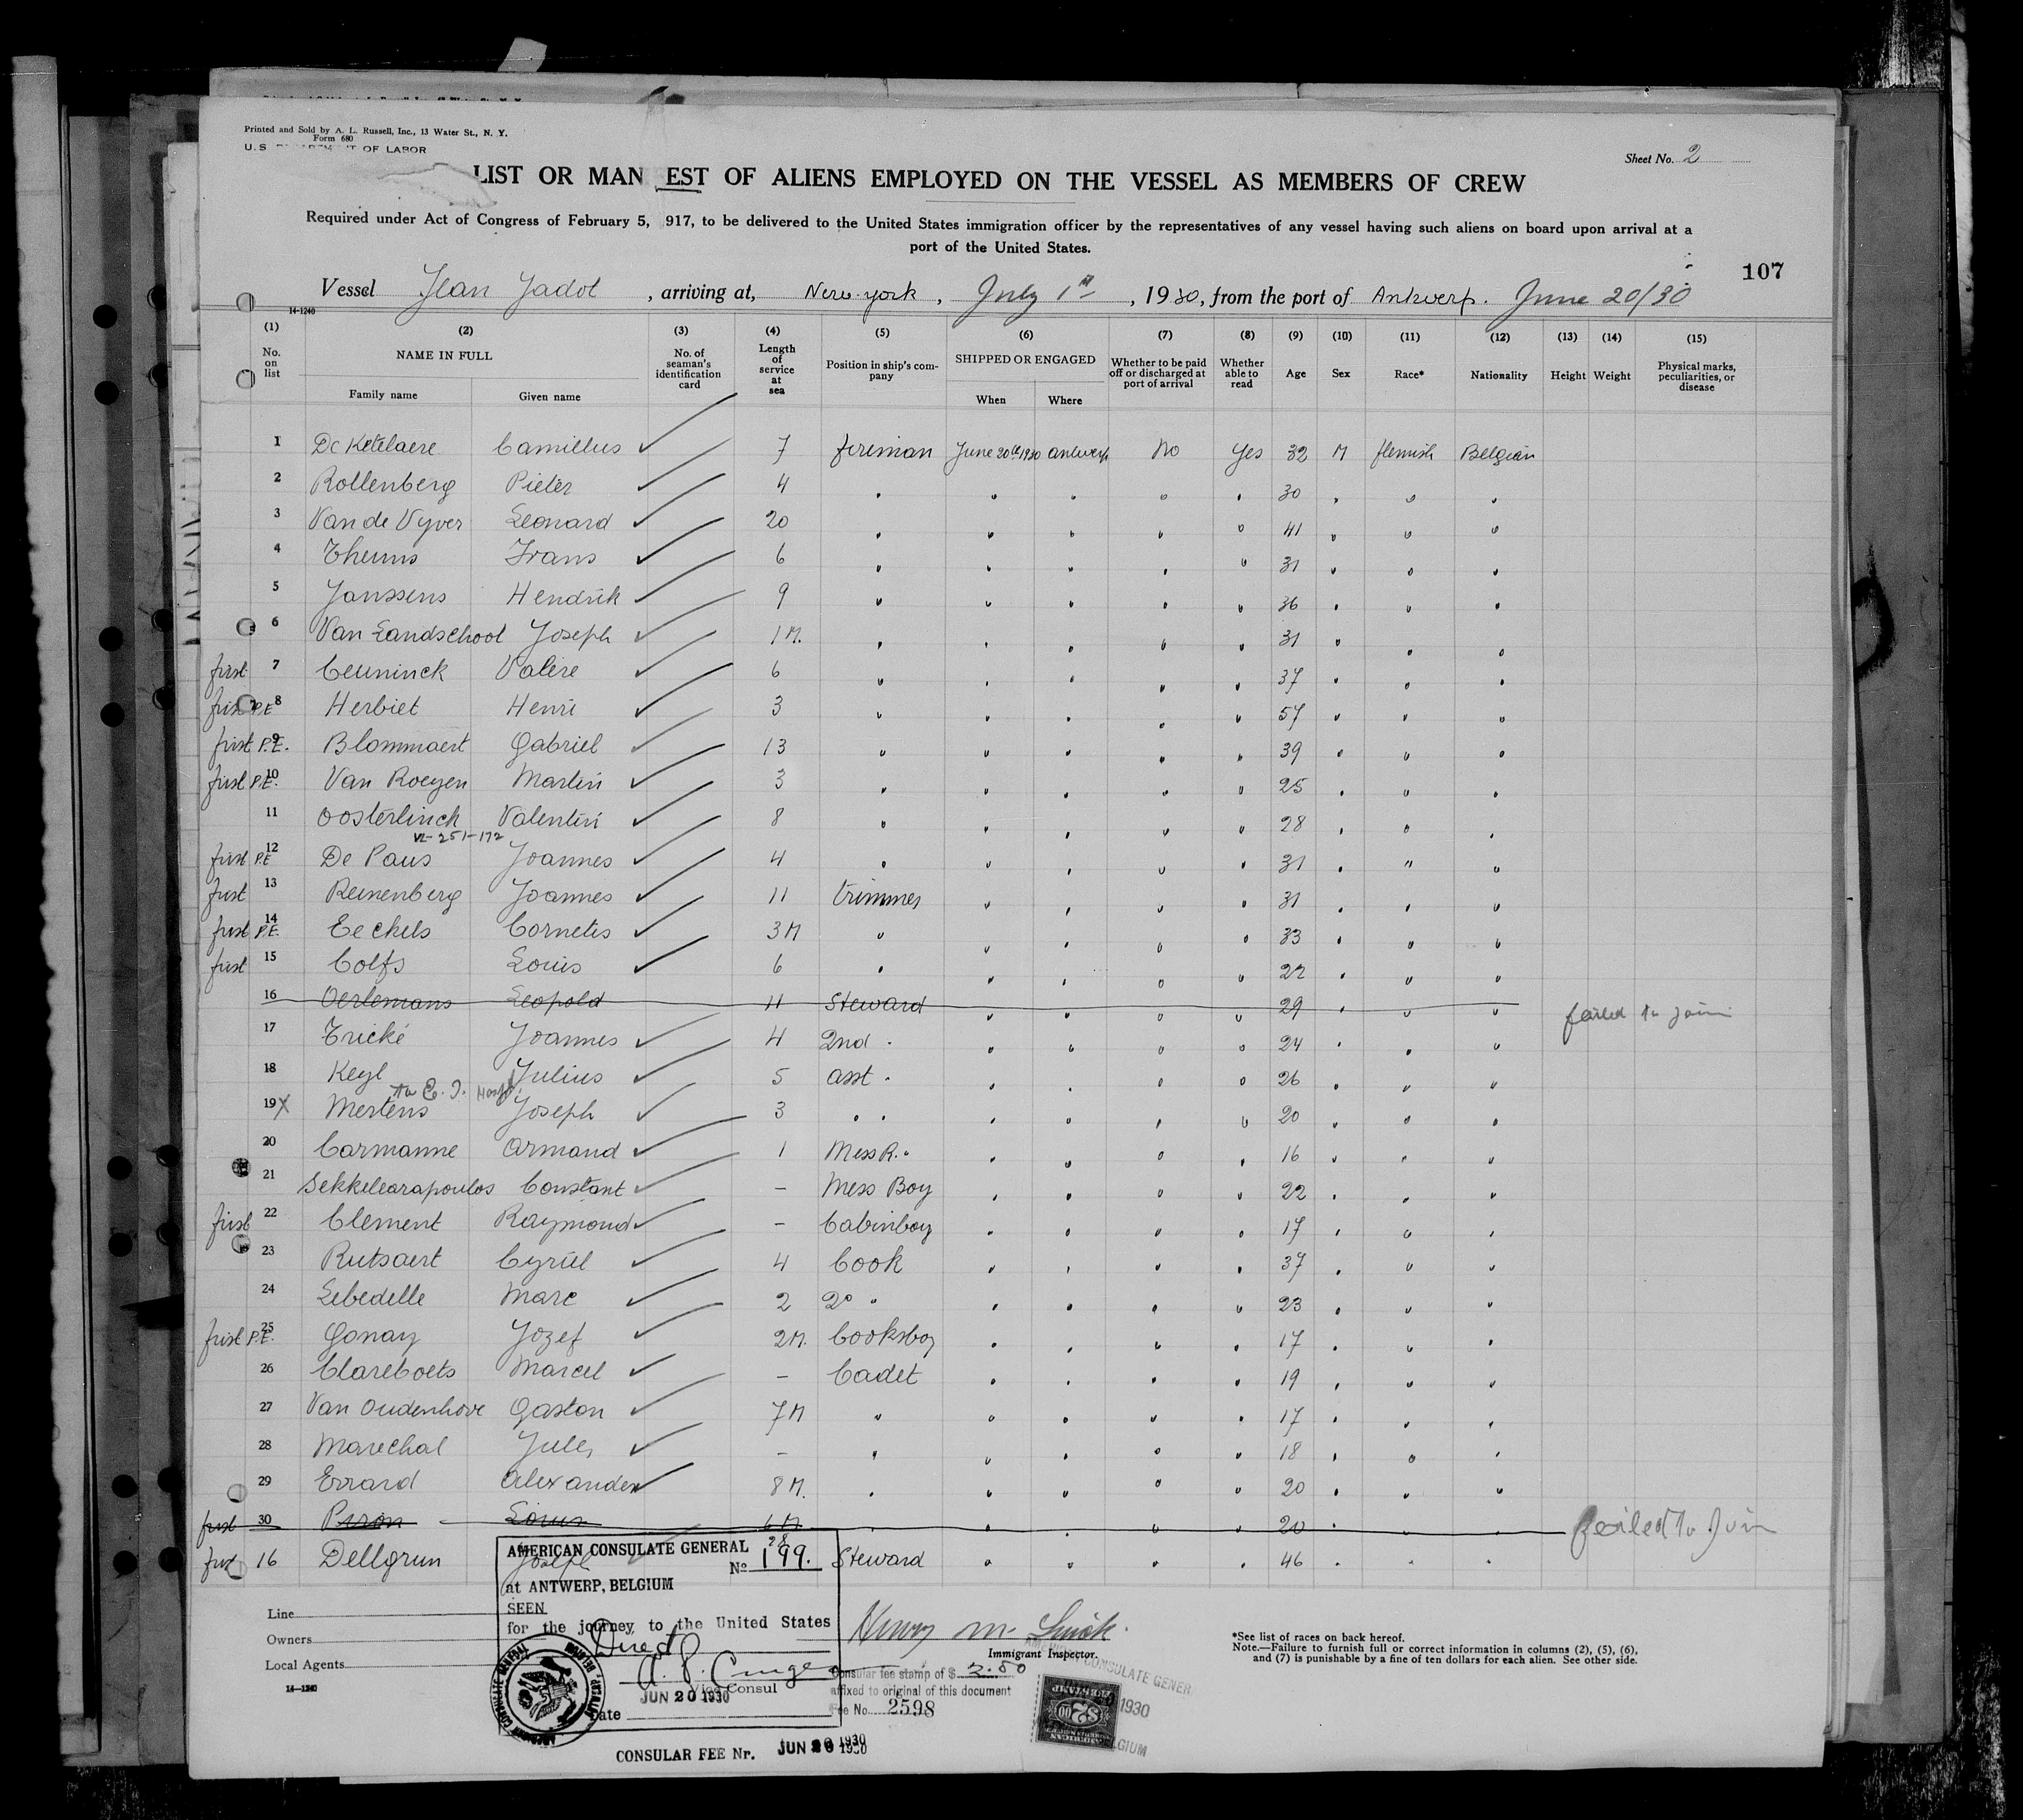 Printed and Sold by A. L. Russell, Inc., 13 Water St., N. Y.
Form 680
U.S. DEPARTMENT OF LABOR
Sheet No. 2
LIST OR MAN EST OF ALIENS EMPLOYED ON THE VESSEL AS MEMBERS OF CREW
Required under Act of Congress of February 5, 917, to be delivered to the United States immigration officer by the representatives of any vessel having such aliens on board upon arrival at a
port of the United States.
107
Vessel Jean Jadot, arriving at, New-york, July 1st, 1930, from the port of Antwerp. June 20/30
14-1240
(1) (2) (3) (4) (5) (6) (7) (8) (9) (10) (11) (12) (13) (14) (15)
No. on list NAME IN FULL Family name Given name No. of seaman's identification card Length of service at sea Position in ship's company SHIPPED OR ENGAGED When Where Whether to be paid off or discharged at port of arrival Whether able to read Age Sex Race* Nationality Height Weight Physical marks, peculiarities, or disease
1 De Ketelaere Camillus ✓ 7 fireman June 20th 1930 antwerp No Yes 32 M flemish Belgian
2 Rollenberg Pieter ✓ 4 " " " " " 30 " " "
3 Van de Vyver Leonard ✓ 20 " " " " " 41 " " "
4 Theunis Frans ✓ 6 " " " " " 31 " " "
5 Janssens Hendrik ✓ 9 " " " " " 36 " " "
6 Van Landschoot Joseph ✓ 1 M. " " " " " 31 " " "
first 7 Ceuninck Valère ✓ 6 " " " " " 37 " " "
first P.E 8 Herbiet Henri ✓ 3 " " " " " 57 " " "
first P.E. 9 Blommaert Gabriel ✓ 13 " " " " " 39 " " "
first P.E. 10 Van Roeyen Martin ✓ 3 " " " " " 25 " " "
11 Oosterlinck Valentin ✓ 8 " " " " " 28 " " "
251-172
first P.E 12 De Paus Joannes ✓ 4 " " " " " 31 " " "
first 13 Reinenberg Joannes ✓ 11 trimmer " " " " 31 " " "
first P.E. 14 Eeckels Cornelis ✓ 3 M " " " " " 33 " " "
first 15 Colfs Louis ✓ 6 " " " " " 22 " " "
16 Oerlemans Leopold 11 Steward " " " " 29 " " " failed to join
17 Trické Joannes ✓ 4 2nd " " " " " 24 " " "
18 Keyl Julius ✓ 5 asst " " " " " 26 " " "
To E. I. Hosp.
19 X Mertens Joseph ✓ 3 " " " " " " 20 " " "
20 Carmanne Armand ✓ 1 Mess R. " " " " " 16 " " "
21 Sekkelearapoulos Constant ✓ - Mess Boy " " " " 22 " " "
first 22 Clement Raymond ✓ - Cabinboy " " " " 17 " " "
23 Rutsaert Cyriel ✓ 4 Cook " " " " 37 " " "
24 Lebedelle Marc ✓ 2 2° " " " " " 23 " " "
first P.E. 25 Gonay Jozef ✓ 2 M. Cooksboy " " " " 17 " " "
26 Clareboets Marcel ✓ - Cadet " " " " 19 " " "
27 Van Oudenhove Gaston ✓ 7 M " " " " " 17 " " "
28 Marechal Jules ✓ - " " " " " 18 " " "
29 Errard Alexander ✓ 8 M. " " " " " 20 " " "
first 30 Piron Louis 6 M. " " " " " 20 " " " failed to Join
first 16 Dellgrun Joseph ✓ 28 Steward " " " " 46 " " "
AMERICAN CONSULATE GENERAL
No 199.
at ANTWERP, BELGIUM
SEEN
for the journey to the United States
Direct
Vice Consul
JUN 20 1930
Date
AMERICAN CONSULATE GENERAL ANTWERP, BELGIUM
CONSULAR FEE Nr. JUN 20 1930
Line
Owners
Local Agents
14-1240
Immigrant Inspector.
Consular fee stamp of $ 2.00
affixed to original of this document
Fee No. 2598
AMERICAN CONSULATE GENER
1930
BELGIUM
$2.00
*See list of races on back hereof.
Note.—Failure to furnish full or correct information in columns (2), (5), (6),
and (7) is punishable by a fine of ten dollars for each alien. See other side.